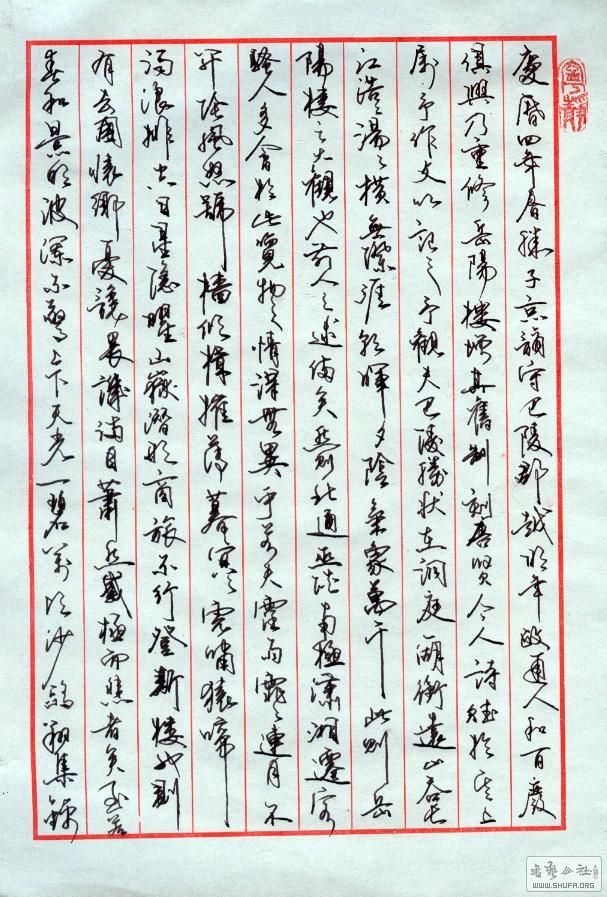 慶曆四年春滕子京謫守巴陵郡越明年政通人和百廢
俱興乃重修岳陽樓增其舊制刻唐賢今人詩賦於其上
屬予作文以記之予觀夫巴陵勝狀在洞庭一湖銜遠山吞長
江浩々湯々橫無際涯朝暉夕陰氣象萬千此則岳
陽樓之大觀也前人之述備矣然則北通巫峽南極瀟湘遷客
騷人多會於此覽物之情得無異乎若夫霪雨霏々連月不
開陰風怒號檣傾楫摧薄暮冥々虎嘯猿啼
濁浪排空日星隱曜山嶽潛形商旅不行登斯樓也則
有去國懷鄉憂讒畏譏滿目蕭然感極而悲者矣至若
春和景明波瀾不驚上下天光一碧萬頃沙鷗翔集錦
書藝公社
WWW.SHUFA.ORG